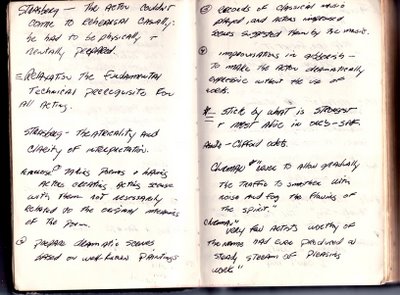 Strasberg - The actor couldn't
come to rehearsal casually:
he had to be physically +
mentally prepared.
Relaxation the fundamental
technical prerequisite for
all acting.
Strasberg - theatricality and
clarity of interpretation.
① taking poems & having
actors creating acting scenes
with them not necessarily
related to the original meaning
of the poem.
② prepare dramatic scenes
based on well known paintings
③ records of classical music
played, and actors improvised
scenes suggested them by the music.
④ improvisations in gibberish -
to make the actor dramatically
expressive without the use of
words.
* - stick by what is strongest
+ most alive in one's-self.
- Clifford Odets.
Clurman "never to allow gradually
the traffic to smother with
noise and fog the flowing of
the spirit."
Clurman "very few artists worthy of
the name had ever produced a
steady stream of pleasing
work"